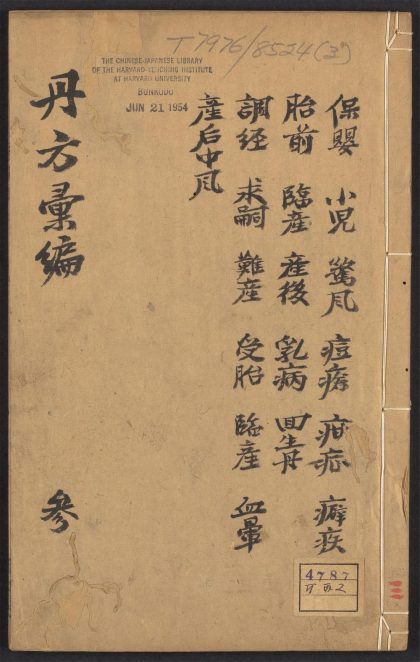 T7976/8524(3)
THE CHINESE-JAPANESE LIBRARY
OF THE HARVARD-YENCHING INSTITUTE
AT HARVARD UNIVERSITY
BUNKUDO
JUN 21 1954
保嬰 小児 驚风 痘疹 疳症 癖疾
胎前 臨産 産後 乳病 回生丹
調経 求嗣 難産 受胎 臨産 血暈
産后中风
丹方彙編 参
4787